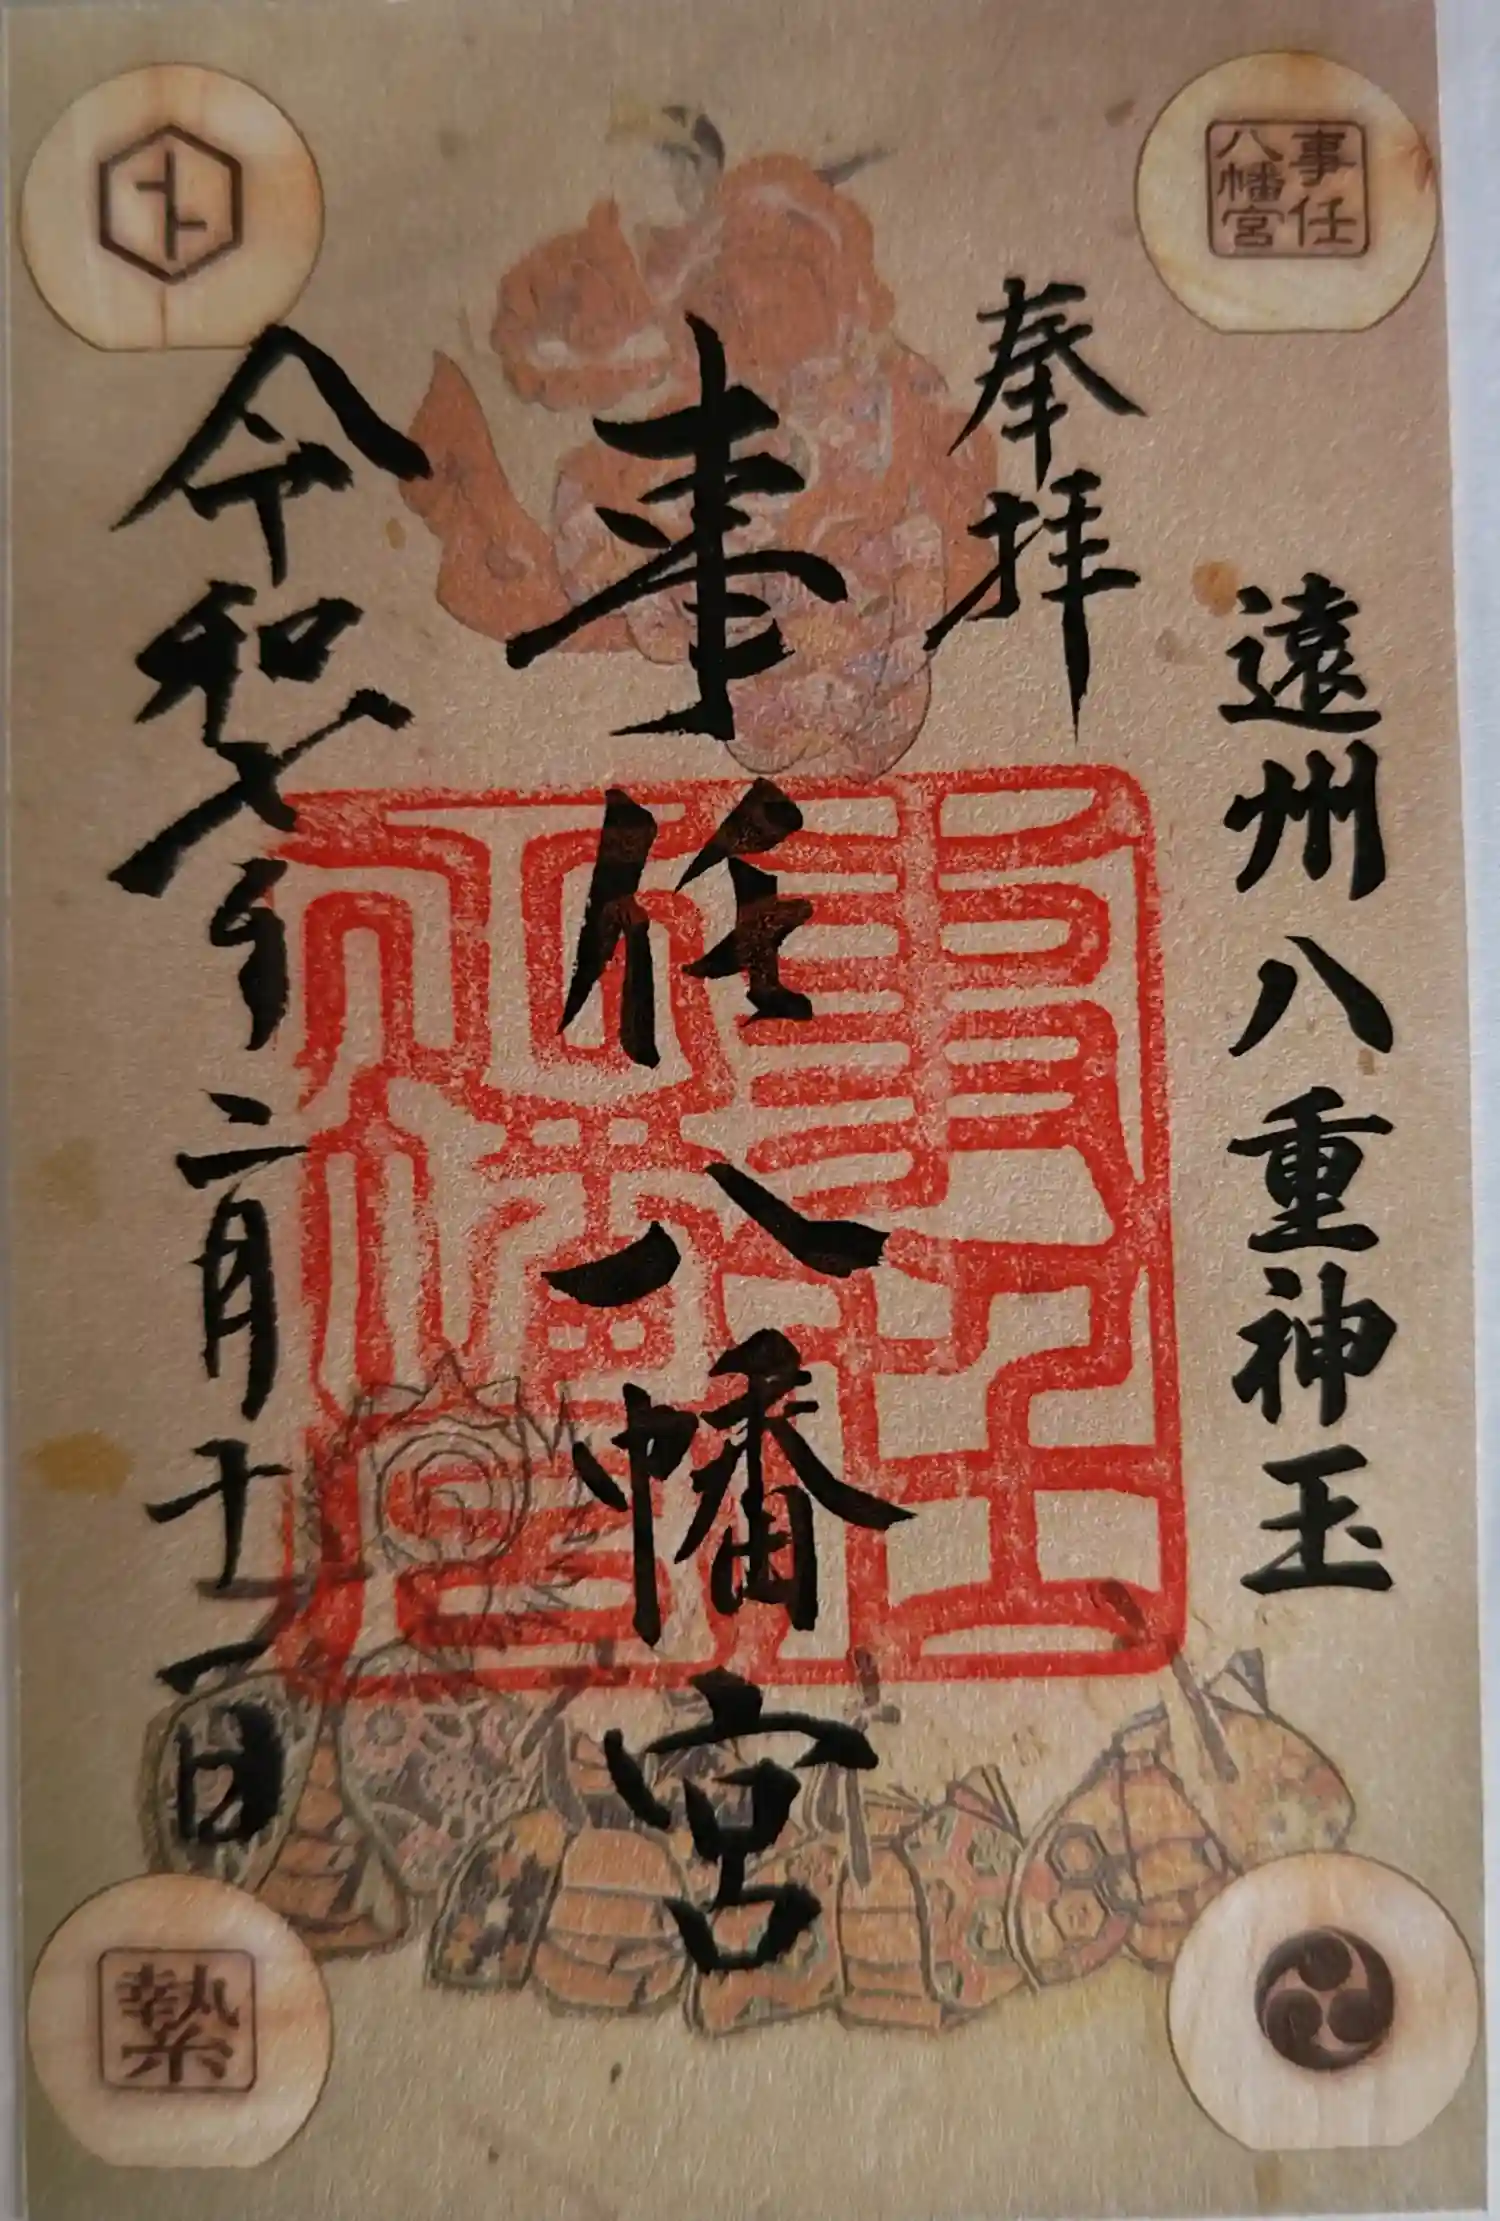 事任
八幡宮
遠州八重神玉
奉拝
事任八幡宮
令和七年二月十一日
事任
八幡宮
縶